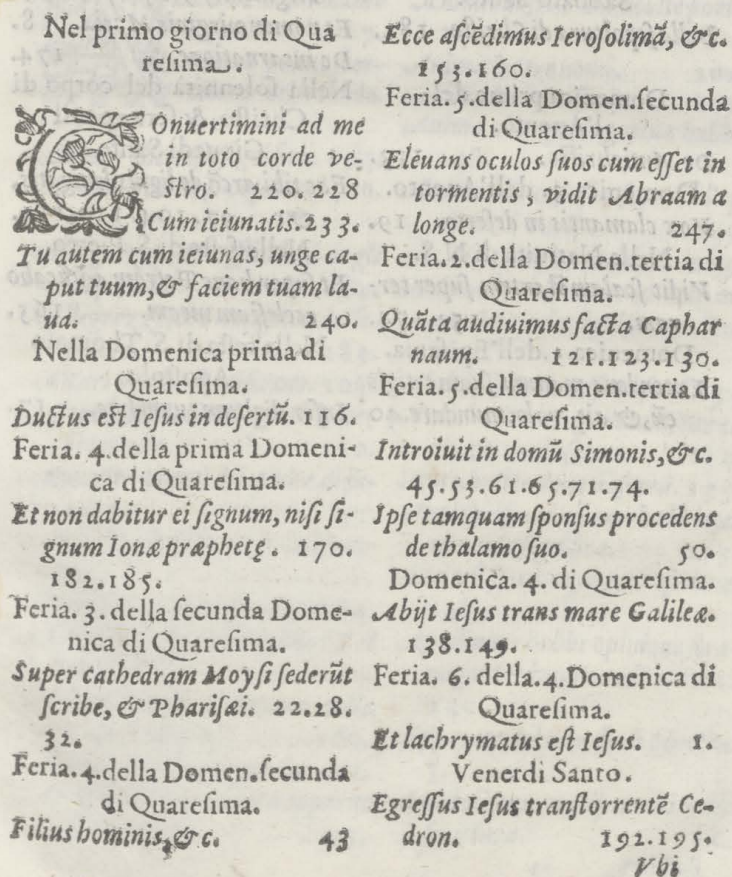 Nel primo giorno di Qua
resima.
COnuertimini ad me
in toto corde ve-
ſtro. 220. 228
Cum ieiunatis. 233.
Tu autem cum ieiunas, unge ca-
put tuum, & faciem tuam la-
ua. 240.
Nella Domenica prima di
Quareſima.
Ductus eſt Ieſus in deſertū. 116.
Feria. 4. della prima Domeni-
ca di Quareſima.
Et non dabitur ei ſignum, niſi ſi-
gnum Ionæ præphetę. 170.
182. 185.
Feria. 3. della ſecunda Dome-
nica di Quareſima.
Super cathedram Moyſi ſederūt
ſcribe, & Phariſæi. 22. 28.
32.
Feria. 4. della Domen. ſecunda
di Quareſima.
Filius hominis, & c. 43
Ecce aſcēdimus Ieroſolimā, &c.
153. 160.
Feria. 5. della Domen. ſecunda
di Quareſima.
Eleuans oculos ſuos cum eſſet in
tormentis, vidit Abraam a
longe. 247.
Feria. 2. della Domen. tertia di
Quareſima.
Quāta audiuimus facta Caphar
naum. 121. 123. 130.
Feria. 5. della Domen. tertia di
Quareſima.
Introiuit in domū Simonis, &c.
45. 53. 61. 65. 71. 74.
Ipſe tamquam ſponſus procedens
de thalamo ſuo. 50.
Domenica. 4. di Quareſima.
Abijt Ieſus trans mare Galileæ.
138. 149.
Feria. 6. della. 4. Domenica di
Quareſima.
Et lachrymatus eſt Ieſus. 1.
Venerdi Santo.
Egreſſus Ieſus tranſtorrentē Ce-
dron. 192. 195.
Vbi